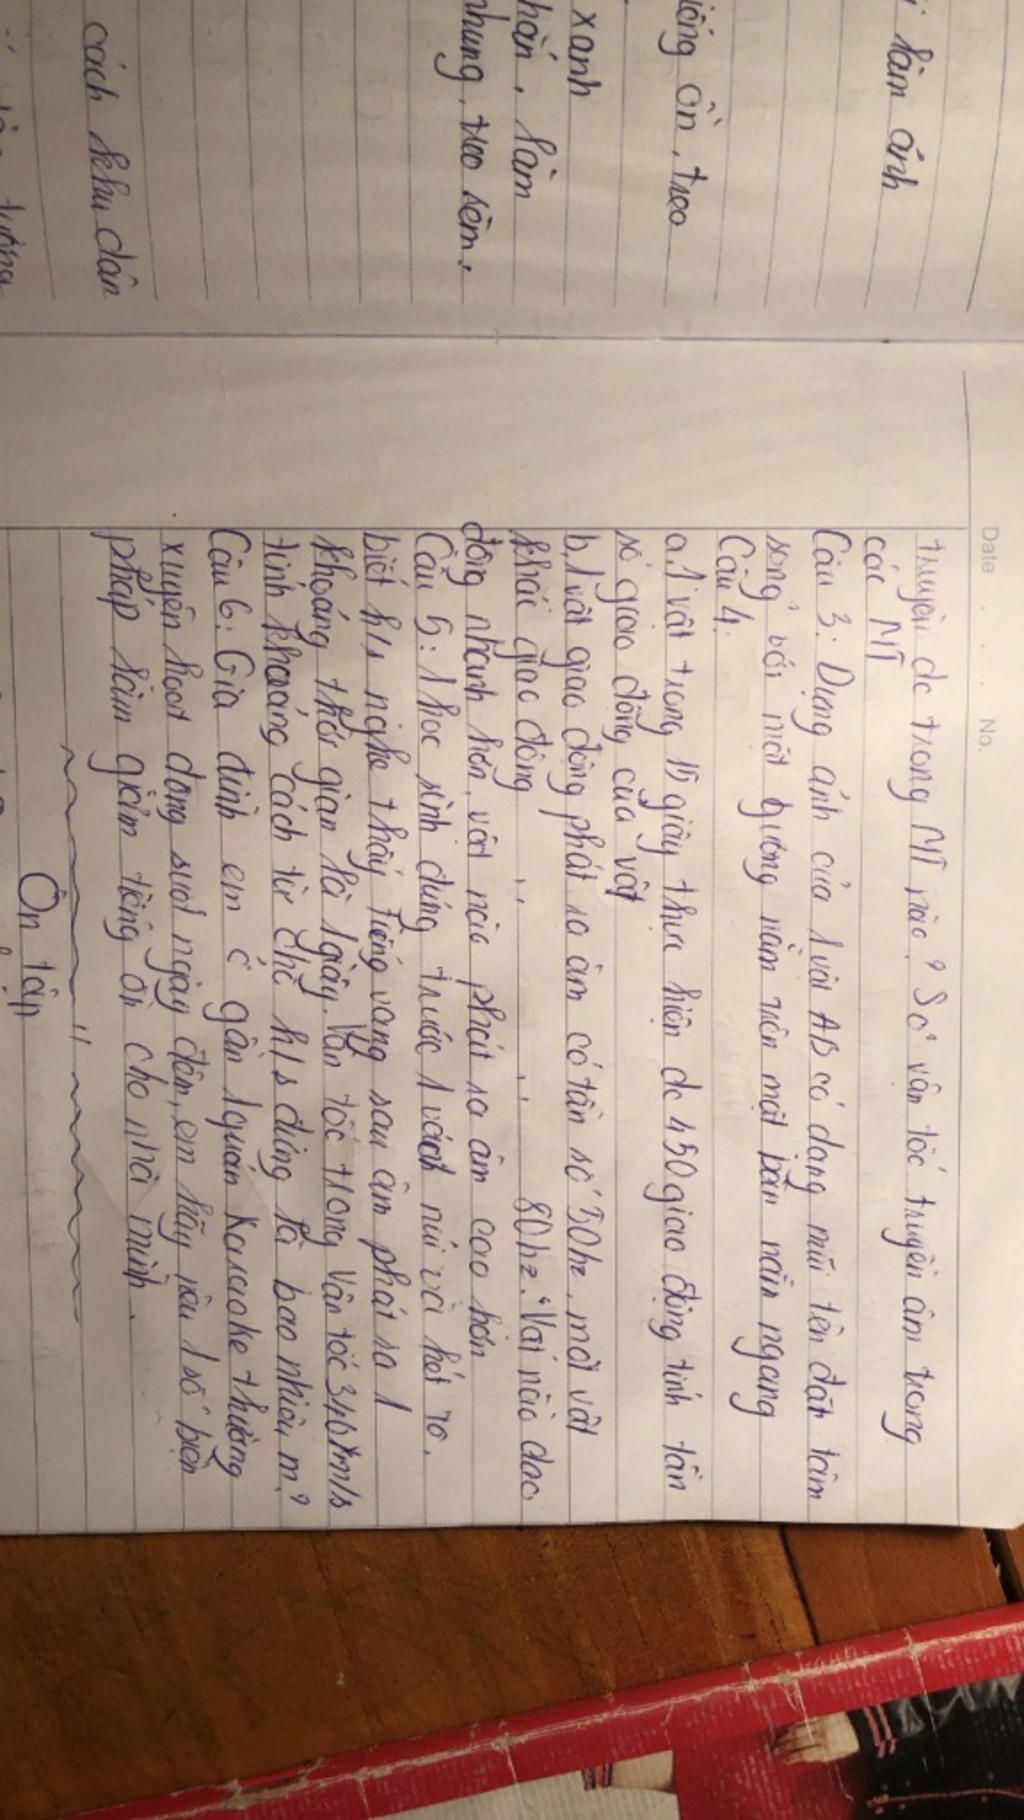 i làm ảnh
iống ồn, treo
xanh
hắn, làm
nhung, treo rèm,
cách khu dân
tường
Date No.
truyền dc trong MT nào? So² vận tốc truyền âm trong
các MT
Câu 3: Dựng ảnh của 1 vật AB có dạng mũi tên đặt tâm
song² với mặt gương nằm trên mặt bàn nằn ngang
Câu 4:
a. 1 vật trong 15 giây thực hiện dc 450 giao động tính tần
số giao động của vật
b, 1 vật giao động phát ra âm có tần số 50hz, một vật
khác giao động , , , , 80hz. Vật nào dao
động nhanh hơn, vật nào phát ra âm cao hơn
Câu 5: 1 học sinh đứng trước 1 vách núi và hét to,
biết h/s nghe thấy tiếng vang sau âm phát ra 1
khoảng thời gian là 1 giây. Vận tốc trong Vận tốc 340 m/s
tính khoảng cách từ chỗ h/s đứng là bao nhiêu m?
Câu 6: Gia đình em ở gần 1 quán Karaoke thường
xuyên hoạt động suốt ngày đêm, em hãy nêu 1 số biện
pháp làm giảm tiếng ồn cho nhà mình.
Ôn tập